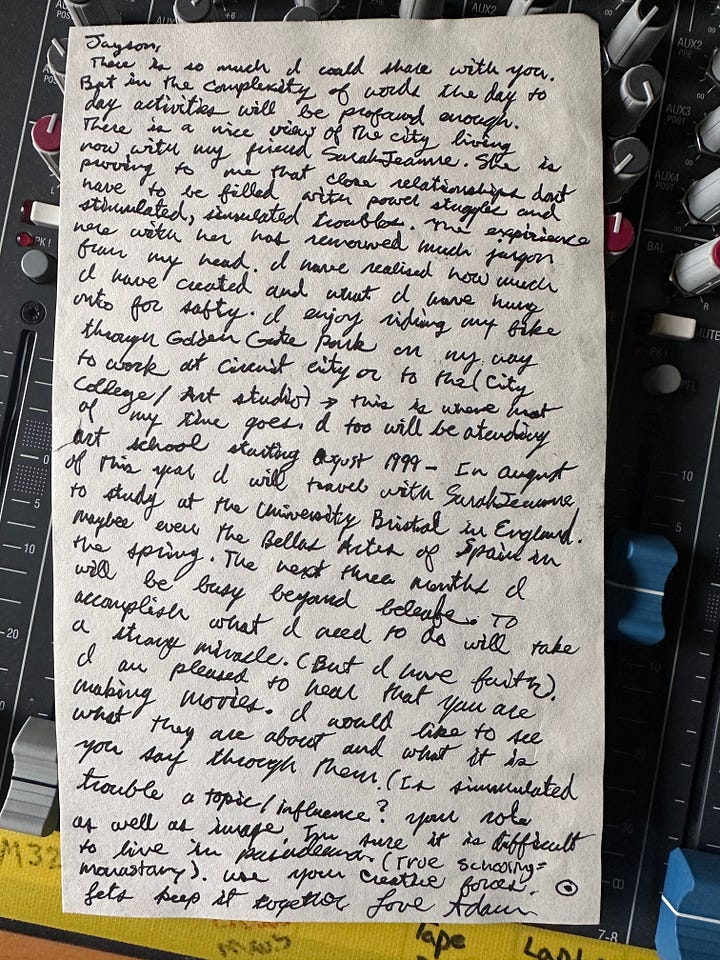 +6
AUX2
Jayson,
There is so much I could share with you.
But in the complexity of words the day to
day activities will be profound enough.
There is a nice view of the city living
now with my friend SarahJeanne. She is
proving to me that close relationships dont
have to be filled with power stuggles and
stimulated, simulated troubles. The expirience
here with her has removed much jargon
from my head. I have realised how much
I have created and what I have hung
onto for safty. I enjoy riding my bike
through Golden Gate Park on my way
to work at Circuit city or to the (City
College/Art studio) → this is where most
of my time goes. I too will be atending
art school starting August 1999 - In august
of this year I will travel with SarahJeanne
to study at the University Bristol in England.
maybee even the Bellas Artes of Spain in
the spring. The next three months I
will be busy beyond beleafe. To
accomplish what I need to do will take
a strong miracle. (But I have faith).
I am pleased to hear that you are
making movies. I would like to see
what they are about and what it is
you say through them. (Is simmulated
trouble a topic/influence? your role
as well as image. Im sure it is difficult
to live in pasadena. (True schooling=
monastary). use your creative forces.
lets keep it together Love Adam
AUX2
PRE
AUX3
POST
AUX4
POST
BAL
L
R
PK!
MUTE
PK!
PFL
5
5
10
10
20
20
30
∞
7-8
M32
Tape